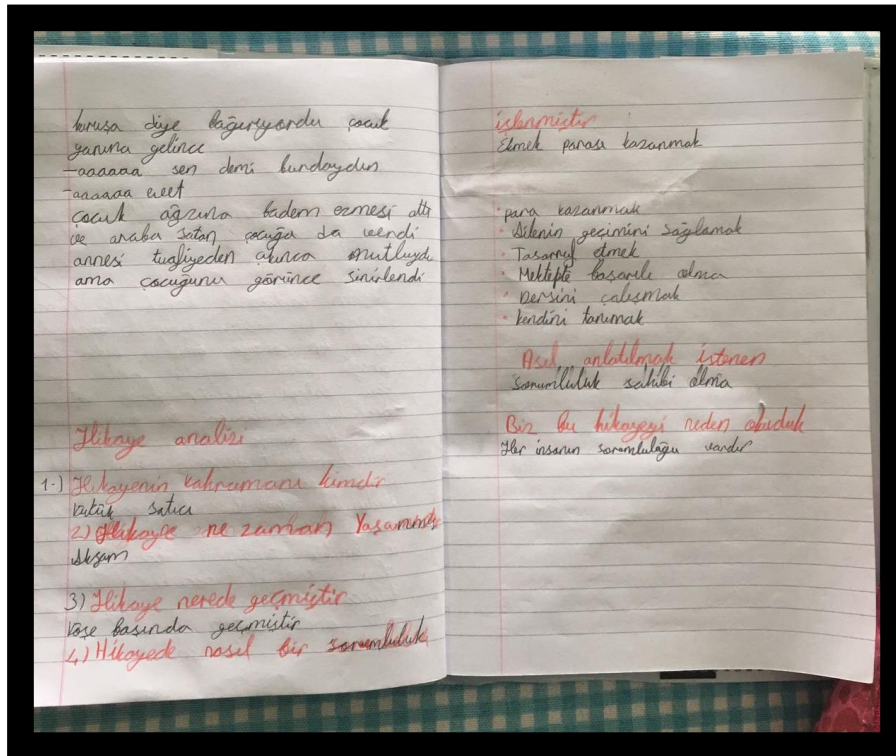 kuruşa diye bağırıyordu çocuk
yanına gelince
-aaaaaa sen demi burdaydın
-aaaaaa evet
çocuk ağzına badem ezmesi attı
ve araba satan çocuğa da verdi
annesi tuvaliyeden çıkınca mutluydu
ama çocuğunu görünce sinirlendi
Hikaye analizi
1-) Hikayenin kahramanı kimdir
küçük satıcı
2) Hikaye ne zaman Yaşanmıştır
Akşam
3) Hikaye nerede geçmiştir
köşe başında geçmiştir
4) Hikayede nasıl bir sorumluluk
işlenmiştir
Ekmek parası kazanmak
• para kazanmak
• Ailenin geçimini sağlamak
• Tasarruf etmek
• Mektepte başarılı olma
• Dersini çalışmak
• kendini tanımak
Asıl anlatılmak istenen
sorumluluk sahibi olma
Biz bu hikayeyi neden okuduk
Her insanın sorumluluğu vardır